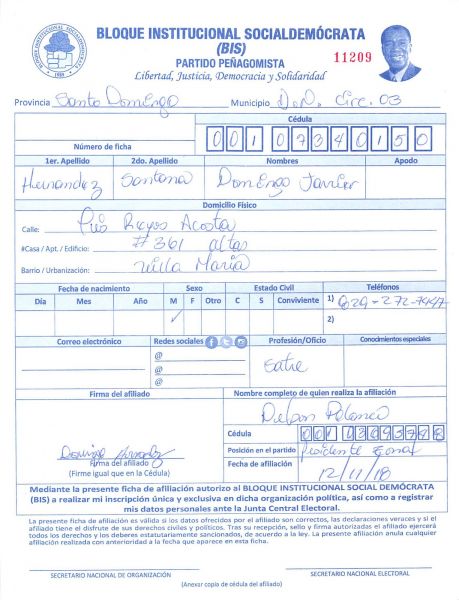 BLOQUE INSTITUCIONAL SOCIALDEMÓCRATA
(BIS)
PARTIDO PEÑAGOMISTA
11209
Libertad, Justicia, Democracia y Solidaridad
Provincia Santo Domingo Municipio D.N. Circ. 03
Cédula
Número de ficha 00107340150
1er. Apellido 2do. Apellido Nombres Apodo
Hernandez Santana Domingo Javier
Domicilio Físico
Calle: Pius Reyos Acosta
#Casa / Apt. / Edificio: #361 altas
Barrio / Urbanización: Villa Maria
Fecha de nacimiento Sexo Estado Civil Teléfonos
Día Mes Año M F Otro C S Conviviente 1) 829-272-7447
✓ 2)
Correo electrónico Redes sociales Profesión/Oficio Conocimientos especiales
@
@ Satre
@
Firma del afiliado Nombre completo de quien realiza la afiliación
Polanco
Cédula
Posición en el partido Presidente Zonal
Domingo Hernandez
Firma del afiliado Fecha de afiliación
(Firme igual que en la Cédula) 12/11/18
Mediante la presente ficha de afiliación autorizo al BLOQUE INSTITUCIONAL SOCIAL DEMÓCRATA
(BIS) a realizar mi inscripción única y exclusiva en dicha organización política, así como a registrar
mis datos personales ante la Junta Central Electoral.
La presente ficha de afiliación es válida si los datos ofrecidos por el afiliado son correctos, las declaraciones veraces y si el
afiliado tiene el disfrute de sus derechos civiles y políticos. Tras su recepción, sello y firma autorizadas el afiliado ejercerá
todos los derechos y los deberes estatutariamente sancionados, de acuerdo a la ley. La presente afiliación anula cualquier
afiliación realizada con anterioridad a la fecha que aparece en esta ficha.
SECRETARIO NACIONAL DE ORGANIZACIÓN SECRETARIO NACIONAL ELECTORAL
(Anexar copia de cédula del afiliado)